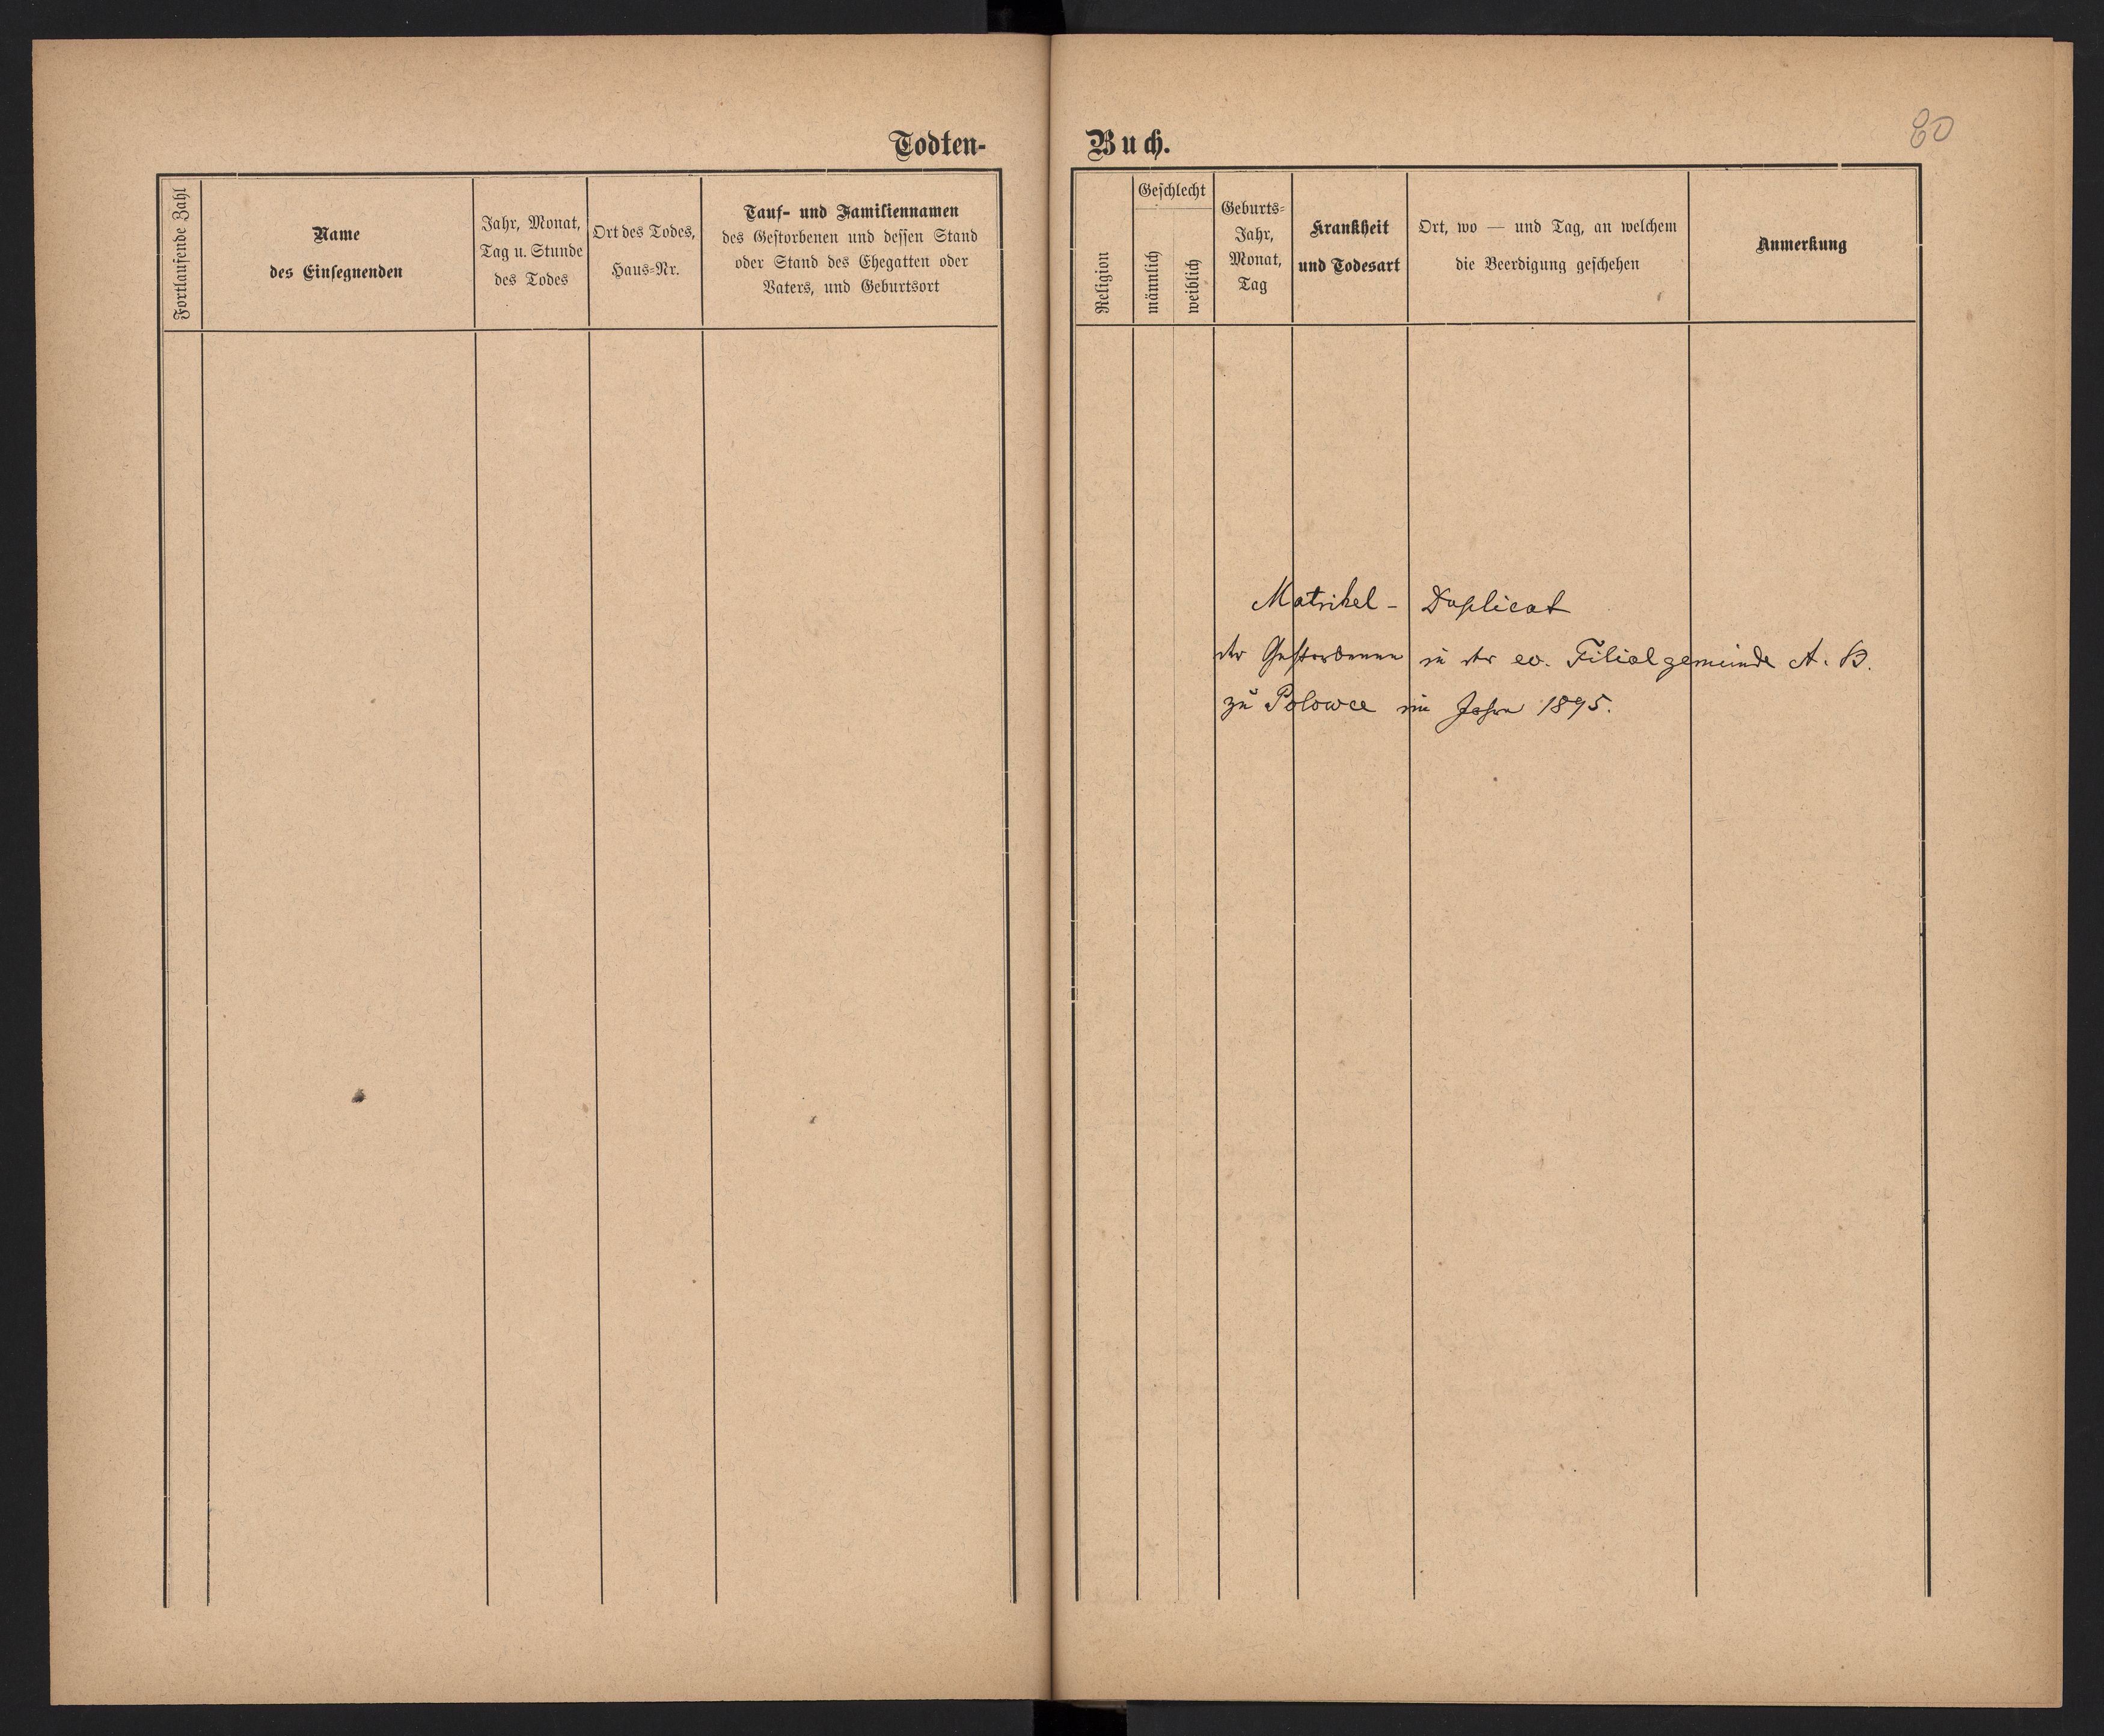 Todten-
Fortlaufende Zahl
Name
des Einsegnenden
Jahr, Monat,
Tag u. Stunde
des Todes
Ort des Todes,
Haus-Nr.
Tauf- und Familiennamen
des Gestorbenen und dessen Stand
oder Stand des Ehegatten oder
Vaters, und Geburtsort
Buch.
80
Religion
Geschlecht
männlich
weiblich
Geburts-
Jahr,
Monat,
Tag
Krankheit
und Todesart
Ort, wo — und Tag, an welchem
die Beerdigung geschehen
Anmerkung
Matrikel - Duplicat
der Gestorbenen in der ev. Filialgemeinde A. B.
zu Polowce im Jahre 1895.